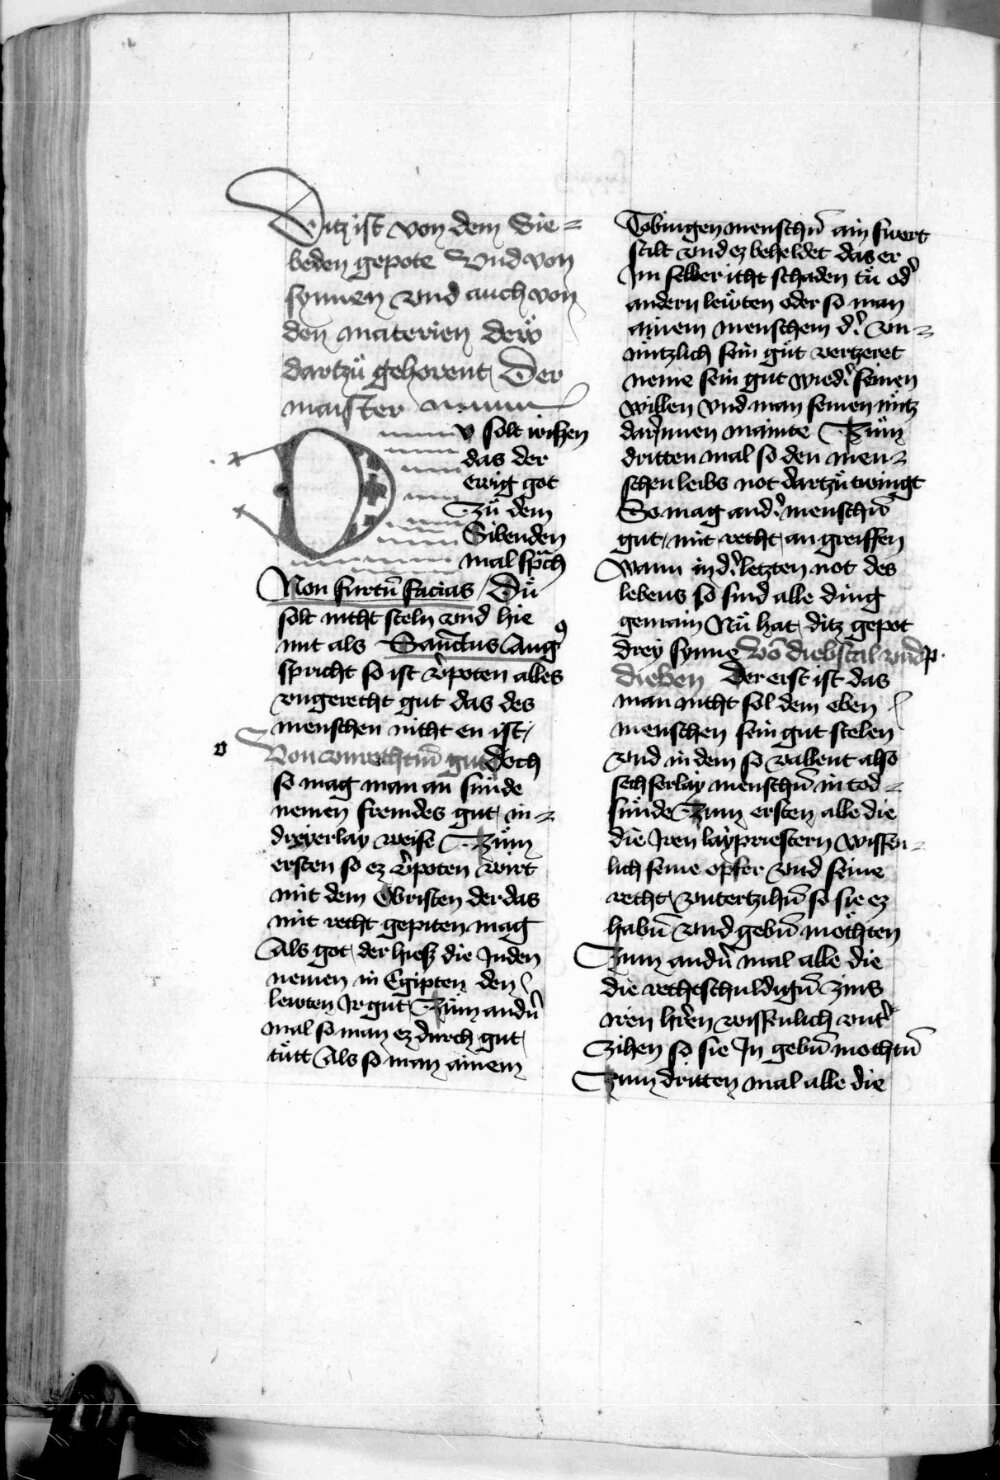 Ditz ist von dem Sie⸗
benden gepote Vnd von
synnen vnd auch von
den materien der
dartzů gehorent Der
maister
v solt wissen
das der
ewig got
Tzů dem
Sibenden
mal sp̄ch
Non furtū facias Dů
solt nicht steln vnd hie
mit als Sanctus Augꝰ
spricht so ist v̾poten alles
vngerecht gut das des
menschen nicht en ist
o
Von vnrechtm̄ gut doch
so mag man an sünde
nemen fremdes gut in⸗
dreyerlay weise Tzům
ersten so ez v̾poten wirt
mit dem Obristen der das
mit recht gepiten mag
Als got der hiesz die Juden
nemen in Egipten den
lewten Jr gut Tzům andn̄
mal so man ez durch gut
tůtt Als so man ainem
Tobingen menschn̄ ain swert
stilt vnd ez beheldet das er
Im selber icht schaden tů od̾
andern lewten oder so man
ainem menschem d̾ vn⸗
nůtzlich sein gůt vertzeret
neme sein gut wied̾ seinen
willen vnd man seinen nůtz
darynnen mainte Tzům
dritten mal so den men⸗
schen leibs not dartzů twingt
So mag and̾ menschn̄
gut mit recht an greiffen
Wann in d̾ letzten not des
lebens so sind alle ding
gemain Nů hat ditz gepot
drey synne Vō diebstal vnd p.
dieben Der erst ist das
man nicht sol dem eben
menschen sein gut stelen
vnd in dem so vallent also
sechserlay menschn̄ in tod⸗
sůnde Tzum ersten alle die
die Iren laypriestern wissen⸗
lich seine opfer vnd seine
recht vntertzihn̄ so sie ez
habn̄ vnd gebn̄ mőchten
Tzum andn̄ mal alle die
die rechtschuldign̄ zins
iren hren wissenlich vnt̾
Zihen so sie In gebn̄ mochtn̄
Tzum dritten mal alle die